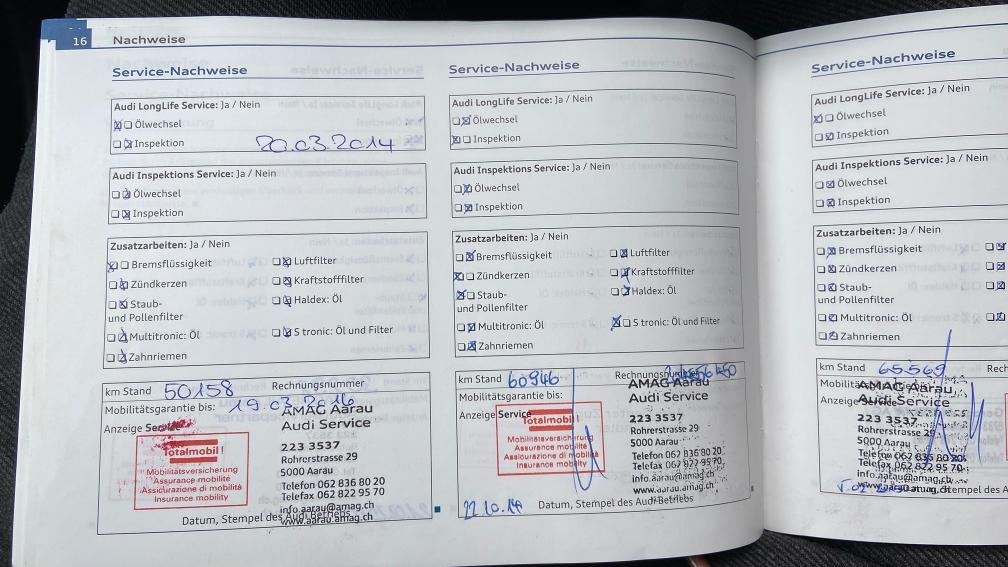 16 Nachweise
Service-Nachweise
Audi LongLife Service: Ja / Nein
Ölwechsel
Inspektion 20.03.2014
Audi Inspektions Service: Ja / Nein
Ölwechsel
Inspektion
Zusatzarbeiten: Ja / Nein
Bremsflüssigkeit Luftfilter
Zündkerzen Kraftstofffilter
Staub- Haldex: Öl
und Pollenfilter
Multitronic: Öl S tronic: Öl und Filter
Zahnriemen
km Stand 50158 Rechnungsnummer
Mobilitätsgarantie bis: 19.03.2016
Anzeige Service
AMAG Aarau
Audi Service
223 3537
Rohrerstrasse 29
5000 Aarau
Telefon 062 836 80 20
Telefax 062 822 95 70
info.aarau@amag.ch
www.aarau.amag.ch
Totalmobil!
Mobilitätsversicherung
Assurance mobilité
Assicurazione di mobilità
Insurance mobility
Datum, Stempel des Audi Betriebs
Service-Nachweise
Audi LongLife Service: Ja / Nein
Ölwechsel
Inspektion
Audi Inspektions Service: Ja / Nein
Ölwechsel
Inspektion
Zusatzarbeiten: Ja / Nein
Bremsflüssigkeit Luftfilter
Zündkerzen Kraftstofffilter
Staub- Haldex: Öl
und Pollenfilter
Multitronic: Öl S tronic: Öl und Filter
Zahnriemen
km Stand 60946 Rechnungsnummer
Mobilitätsgarantie bis:
Anzeige Service
AMAG Aarau
Audi Service
223 3537
Rohrerstrasse 29
5000 Aarau
Telefon 062 836 80 20
Telefax 062 822 95 70
info.aarau@amag.ch
www.aarau.amag.ch
Totalmobil!
Mobilitätsversicherung
Assurance mobilité
Assicurazione di mobilità
Insurance mobility
22.10.14
Datum, Stempel des Audi Betriebs
Service-Nachweise
Audi LongLife Service: Ja / Nein
Ölwechsel
Inspektion
Audi Inspektions Service: Ja / Nein
Ölwechsel
Inspektion
Zusatzarbeiten: Ja / Nein
Bremsflüssigkeit
Zündkerzen
Staub-
und Pollenfilter
Multitronic: Öl
Zahnriemen
km Stand 65569
Anzeige Service
AMAG Aarau
Audi Service
223 3537
Rohrerstrasse 29
5000 Aarau
Telefon 062 836 80 20
Telefax 062 822 95 70
info.aarau@amag.ch
www.aarau.amag.ch